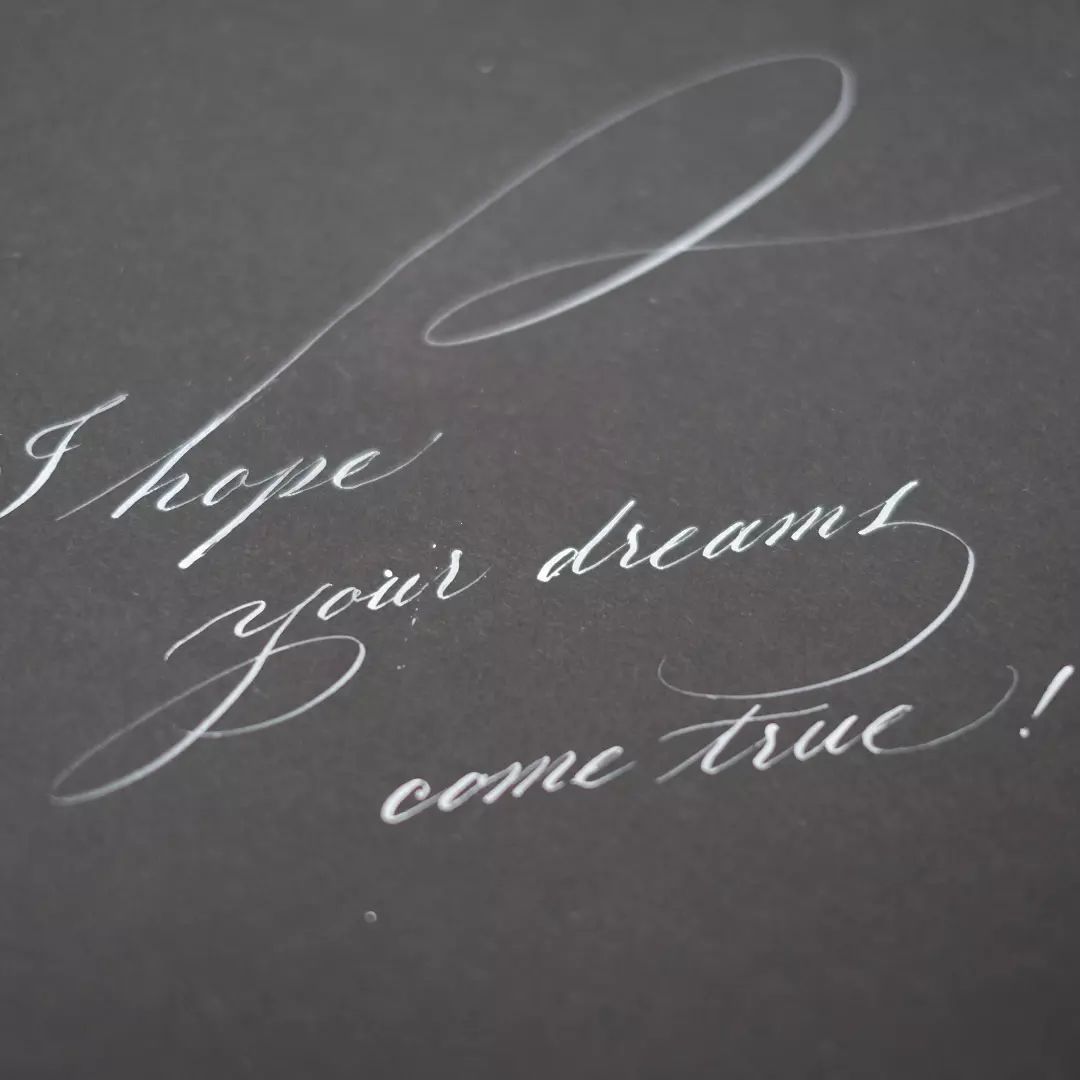 I hope
your dreams
come true!